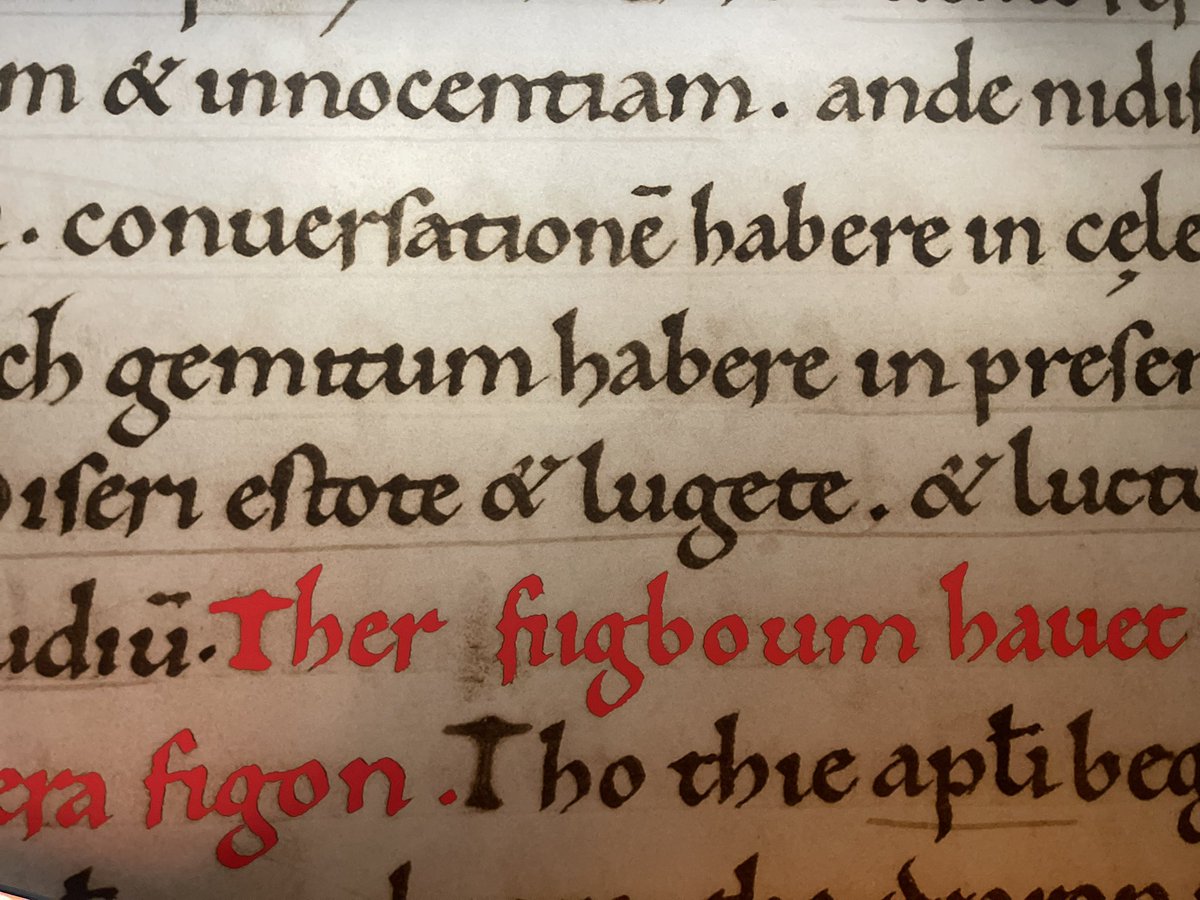 m & innocentiam. ande nidiſ
. conuerſationē habere in cęle
ch gemitum habere in preſen
iſeri eſtote & lugete. & luctu
udiū. Ther figboum hauet
era figon. Tho thie apłi beg